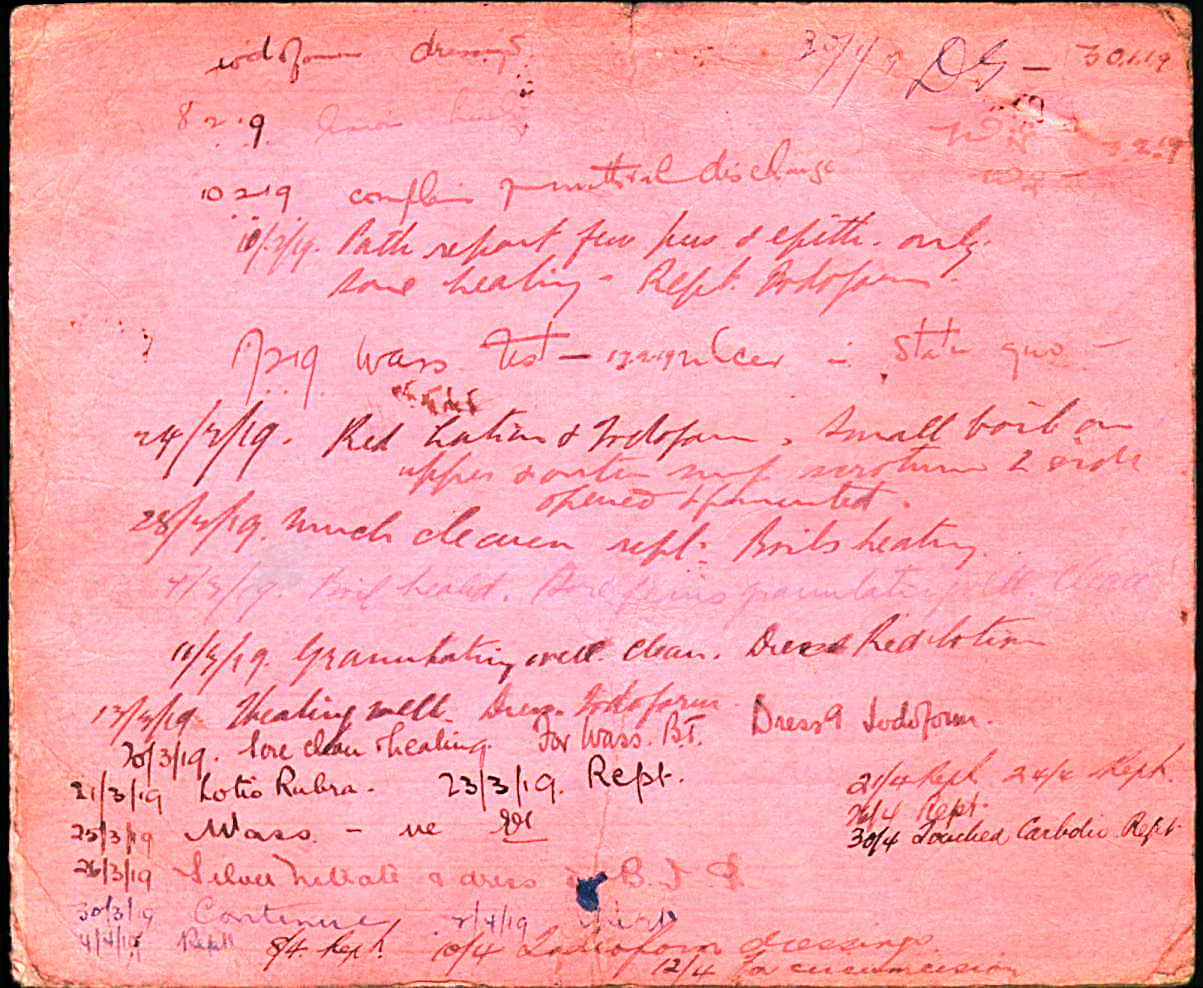 iodoform dressings 30/1/19 DG — 30.1.19
8.2.19
3.2.19
10.2.19 complains of urethral discharge
10/2/19. Path report few pus & epith. only
Sore healing - Rept. Iodoform.
17.2.19 Wass Test — 17.2.19 ulcer in statu quo —
24/2/19. Red Lotion & Iodoform. Small boil on
upper & outer scrotum L side
opened & fomented.
28/2/19. Much cleaner rept. Boils healing.
4/3/19. Boil healed. Sore granulating well. Clean
11/3/19. Granulating well. Clean. Dress Red Lotion
13/3/19 Healing well. Dress Iodoform.
20/3/19. Sore clean & healing. For Wass. B.T. Dress Iodoform.
21/3/19 Lotio Rubra. 23/3/19. Rept. 21/4 Rept 24/4 Rept.
26/4 Rept
25/3/19 Wass. - ve 30/4 Touched Carbolic Rept
26/3/19 Silver Nitrate & dress
30/3/19 Continue 2/4/19
4/4/19 Rept 8/4. Rept. 10/4 Iodoform dressings.
12/4 For circumcision